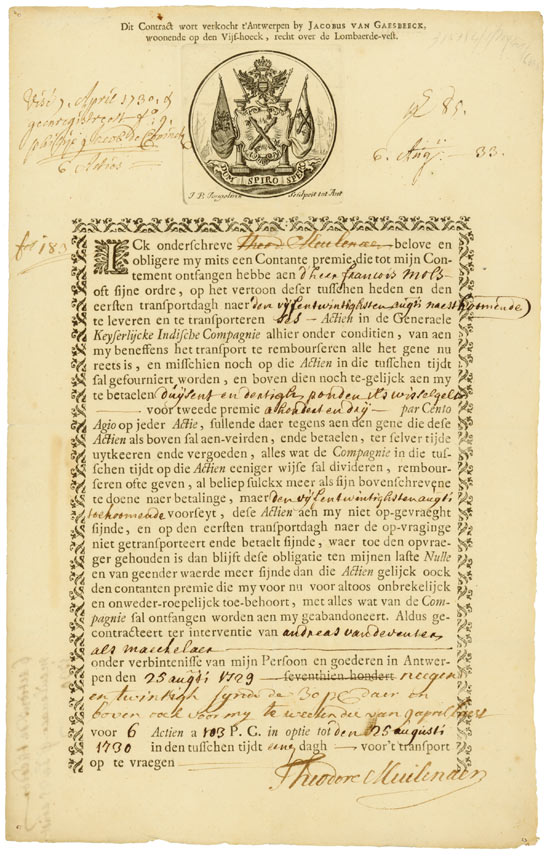 Dit Contract wort verkocht t'Antwerpen by JACOBUS VAN GAESBEECK,
woonende op den Vijf-hoeck, recht over de Lombaerde-vest.
Visé 7 April 1730
geenregistreert
6 Acties
85.
6 Aug 33.
DUM SPIRO SPERO
I. B. Sculpsit tot Ant
fo 183
ICk onderschreve Theod Meulenaer belove en
obligere my mits een Contante premie, die tot mijn Con-
tement ontfangen hebbe aen d'heer francois Mols
oft sijne ordre, op het vertoon deser tusschen heden en den
eersten transportdagh naer den vijfentwintighsten augti naestkomende
te leveren en te transporteren ses Actien in de Generaele
Keyserlijcke Indische Compagnie alhier onder conditien, van aen
my beneffens het transport te rembourseren alle het gene nu
reets is, en misschien noch op die Actien in die tusschen tijdt
sal gefourniert worden, en boven dien noch te-gelijck aen my
te betaelen duysent en dertigh ponden vls wisselgelt
voor tweede premie a hondert en dry par Cento
Agio op jeder Actie, sullende daer tegens aen den gene die dese
Actien als boven sal aen-veirden, ende betaelen, ter selver tijde
uytkeeren ende vergoeden, alles wat de Compagnie in die tus-
schen tijdt op die Actien eeniger wijse sal divideren, rembour-
seren ofte geven, al beliep sulckx meer als sijn bovenschrevene
te doene naer betalinge, maer den vijfentwintighsten augti
toekoomende voorseyt, dese Actien aen my niet op-gevraeght
sijnde, en op den eersten transportdagh naer de op-vraginge
niet getransporteert ende betaelt sijnde, waer toe den opvrae-
ger gehouden is dan blijft dese obligatie ten mijnen laste Nulle
en van geender waerde meer sijnde dan die Actien gelijck oock
den contanten premie die my voor nu voor altoos onbrekelijck
en onweder-roepelijck toe-behoort, met alles wat van de Com-
pagnie sal ontfangen worden aen my geabandoneert. Aldus ge-
contracteert ter interventie van andreas vandeventer
als maeckelaer
onder verbintenisse van mijn Persoon en goederen in Antwer-
pen den 25 augti 1729 seventhien hondert negen
en twintigh sijnde de 30 p C daer en
boven oock voor my te weeten den van 9 april
voor 6 Actien a 103 P. C. in optie tot den 25 augusti
1730 in den tusschen tijdt eenig dagh voor't transport
op te vraegen
Theodore Meulenaer